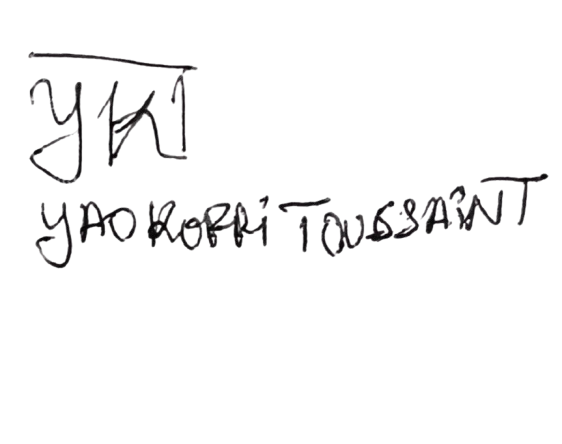 YKT
YAO KOFFI TOUSSAINT